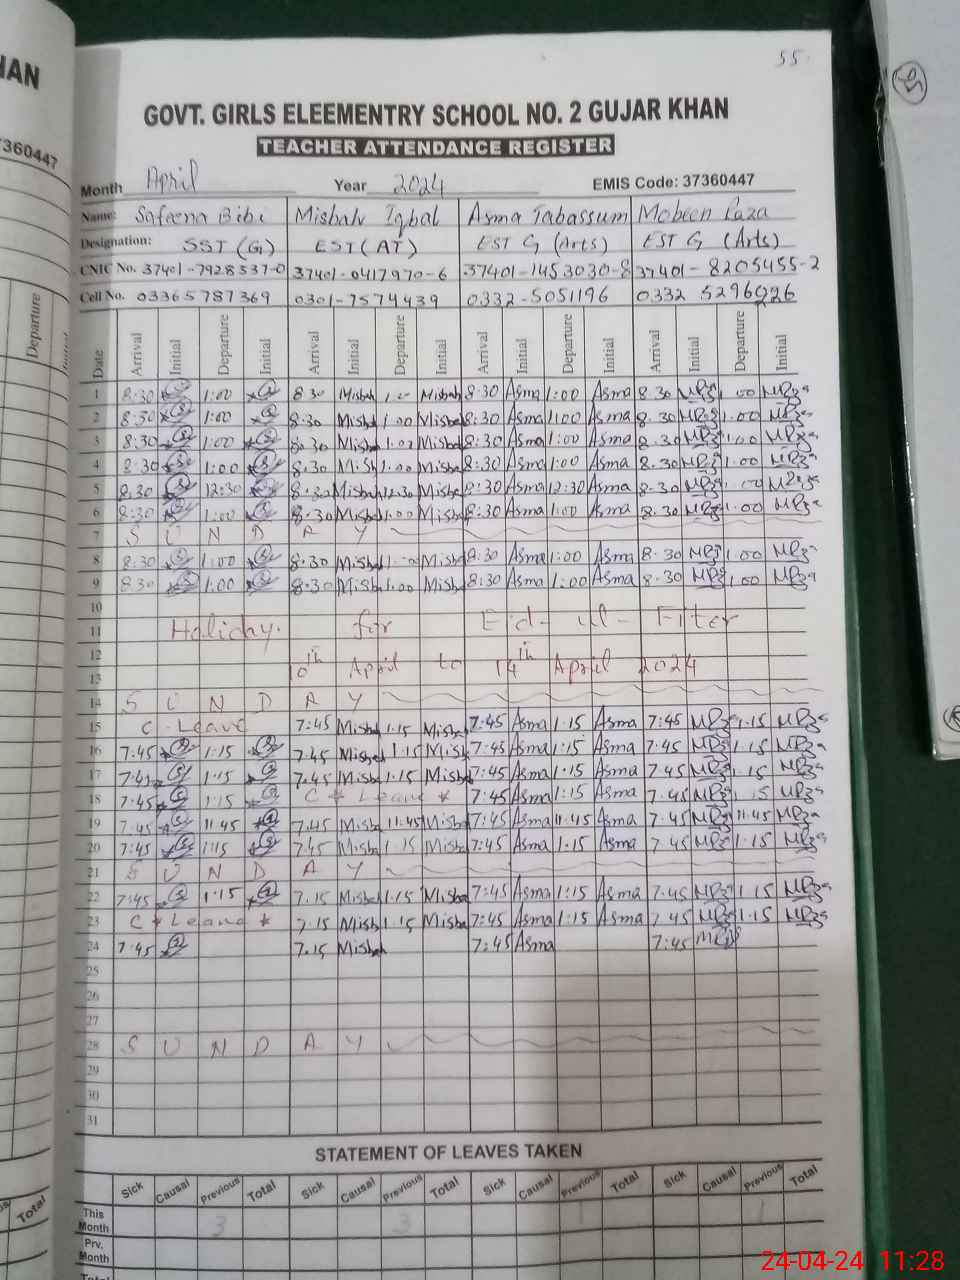 55
IAN
7360447
GOVT. GIRLS ELEEMENTRY SCHOOL NO. 2 GUJAR KHAN
TEACHER ATTENDANCE REGISTER
Month April Year 2024 EMIS Code: 37360447
Name: Safeena Bibi Misbah Iqbal Asma Tabassum Mobeen Raza
Designation: SST (G) EST (AT) EST G (Arts) EST G (Arts)
CNIC No. 37401-7928537-0 37401-0417970-6 37401-1453030-8 37401-8205455-2
Cell No. 03365787369 0301-7574439 0332-5051196 0332 5296926
Date Arrival Initial Departure Initial Arrival Initial Departure Initial Arrival Initial Departure Initial Arrival Initial Departure Initial
1 8:30 1:00 8 30 Misbah Misbah 8:30 Asma 1:00 Asma 8.30 1.00
2 8:30 1:00 8:30 Misbah 1.00 Misbah 8:30 Asma 1:00 Asma 8.30 1.00
3 8:30 1:00 8.30 Misbah 1.00 Misbah 8:30 Asma 1:00 Asma 8.30 1.00
4 8:30 1:00 8.30 Misbah 1.00 Misbah 8:30 Asma 1:00 Asma 8.30 1.00
5 8.30 12:30 8.30 Misbah 12.30 Misbah 8:30 Asma 12:30 Asma 8.30
6 8:30 1:00 8.30 Misbah 1:00 Misbah 8:30 Asma 1:00 Asma 8.30 1.00
7 S U N D A Y
8 8:30 1:00 8.30 Misbah Misbah 8:30 Asma 1:00 Asma 8.30 1.00
9 8:30 1:00 8.30 Misbah 1.00 Misbah 8:30 Asma 1:00 Asma 8.30 1.00
10
11 Holiday. for Eid-ul-Fiter
12
13 10th April to 14th April 2024
14 S U N D A Y
15 C. Leave 7:45 Misbah 1.15 Misbah 7:45 Asma 1:15 Asma 7:45 1.15
16 7:45 1:15 7.45 Misbah 1.15 Misbah 7:45 Asma 1:15 Asma 7.45 1.15
17 7:45 1:15 7.45 Misbah 1.15 Misbah 7:45 Asma 1:15 Asma 7.45 1.15
18 7:45 1:15 C * Leave * 7:45 Asma 1:15 Asma 7.45 1.15
19 7:45 11:45 7.45 Misbah 11:45 Misbah 7:45 Asma 11:45 Asma 7.45 11.45
20 7:45 1:15 7.45 Misbah 1.15 Misbah 7:45 Asma 1:15 Asma 7.45 1.15
21 S U N D A Y
22 7:45 1:15 7.15 Misbah 1.15 Misbah 7:45 Asma 1:15 Asma 7.45 1.15
23 C * Leave * 7.15 Misbah 1.15 Misbah 7:45 Asma 1:15 Asma 7.45 1.15
24 7:45 7.15 Misbah 7:45 Asma 7:45
25
26
27
28 S U N D A Y
29
30
31
STATEMENT OF LEAVES TAKEN
Sick Causal Previous Total Sick Causal Previous Total Sick Causal Previous Total Sick Causal Previous Total
This Month 3 3 1 1
Prv. Month
Total
Departure
Total
24-04-24 11:28